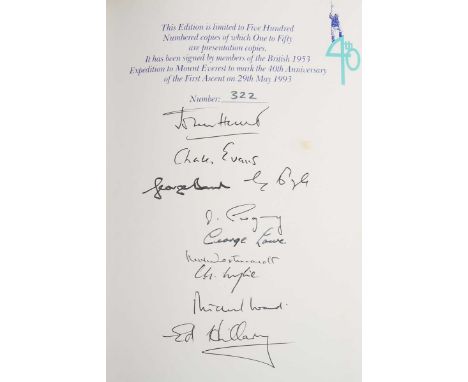 This Edition is limited to Five Hundred
Numbered copies of which One to Fifty
are presentation copies.
It has been signed by members of the British 1953
Expedition to Mount Everest to mark the 40th Anniversary
of the First Ascent on 29th May 1993
40th
Number: 322
John Hunt
Charles Evans
George Band
George Lowe
Michael Ward
Ed Hillary